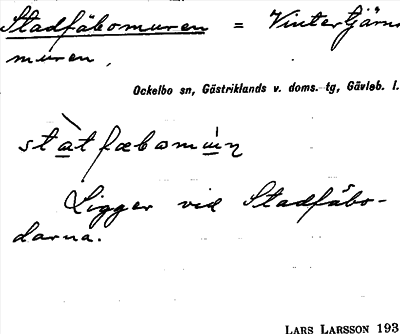 Stadfäbomuren = Vintertjärns
muren,
Ockelbo sn, Gästriklands v. doms.-tg, Gävleb. l.
stàtfæbomú̄n
Ligger vid Stadfäbo-
darna.
LARS LARSSON 193